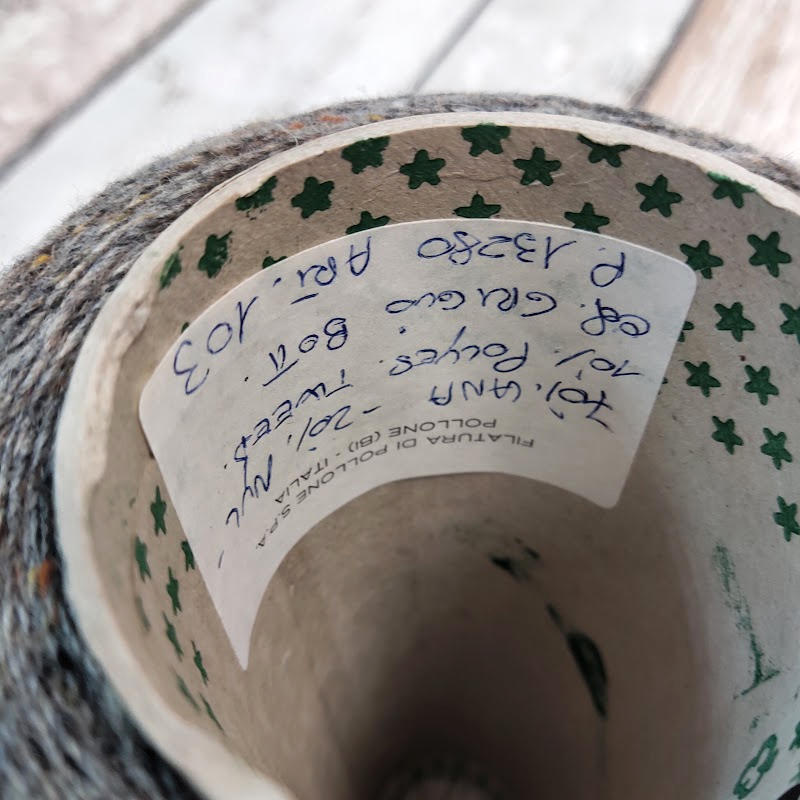 FILATURA DI POLLONE S.P.A.
POLLONE (BI) - ITALIA
70%. LANA - 20%. NYL -
10%. POLYES. TWEED.
COL. GRIGIO BOTT.
P. 13280 ART. 103